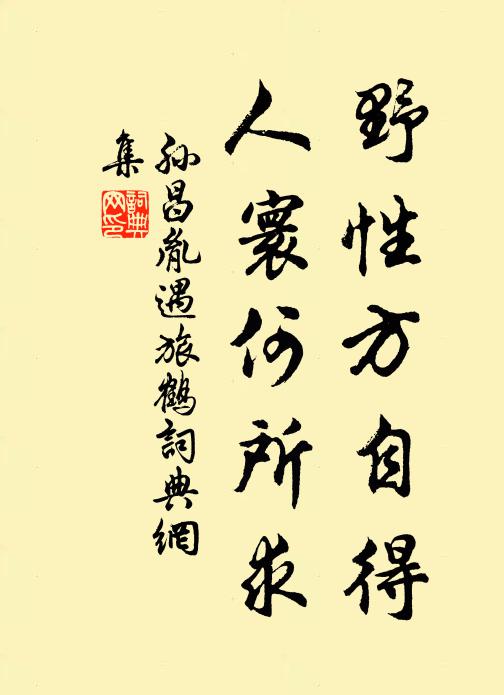 野性方自得
人寰何所求
孙昌胤遇旅鶴詞典網
集
詞典
网印